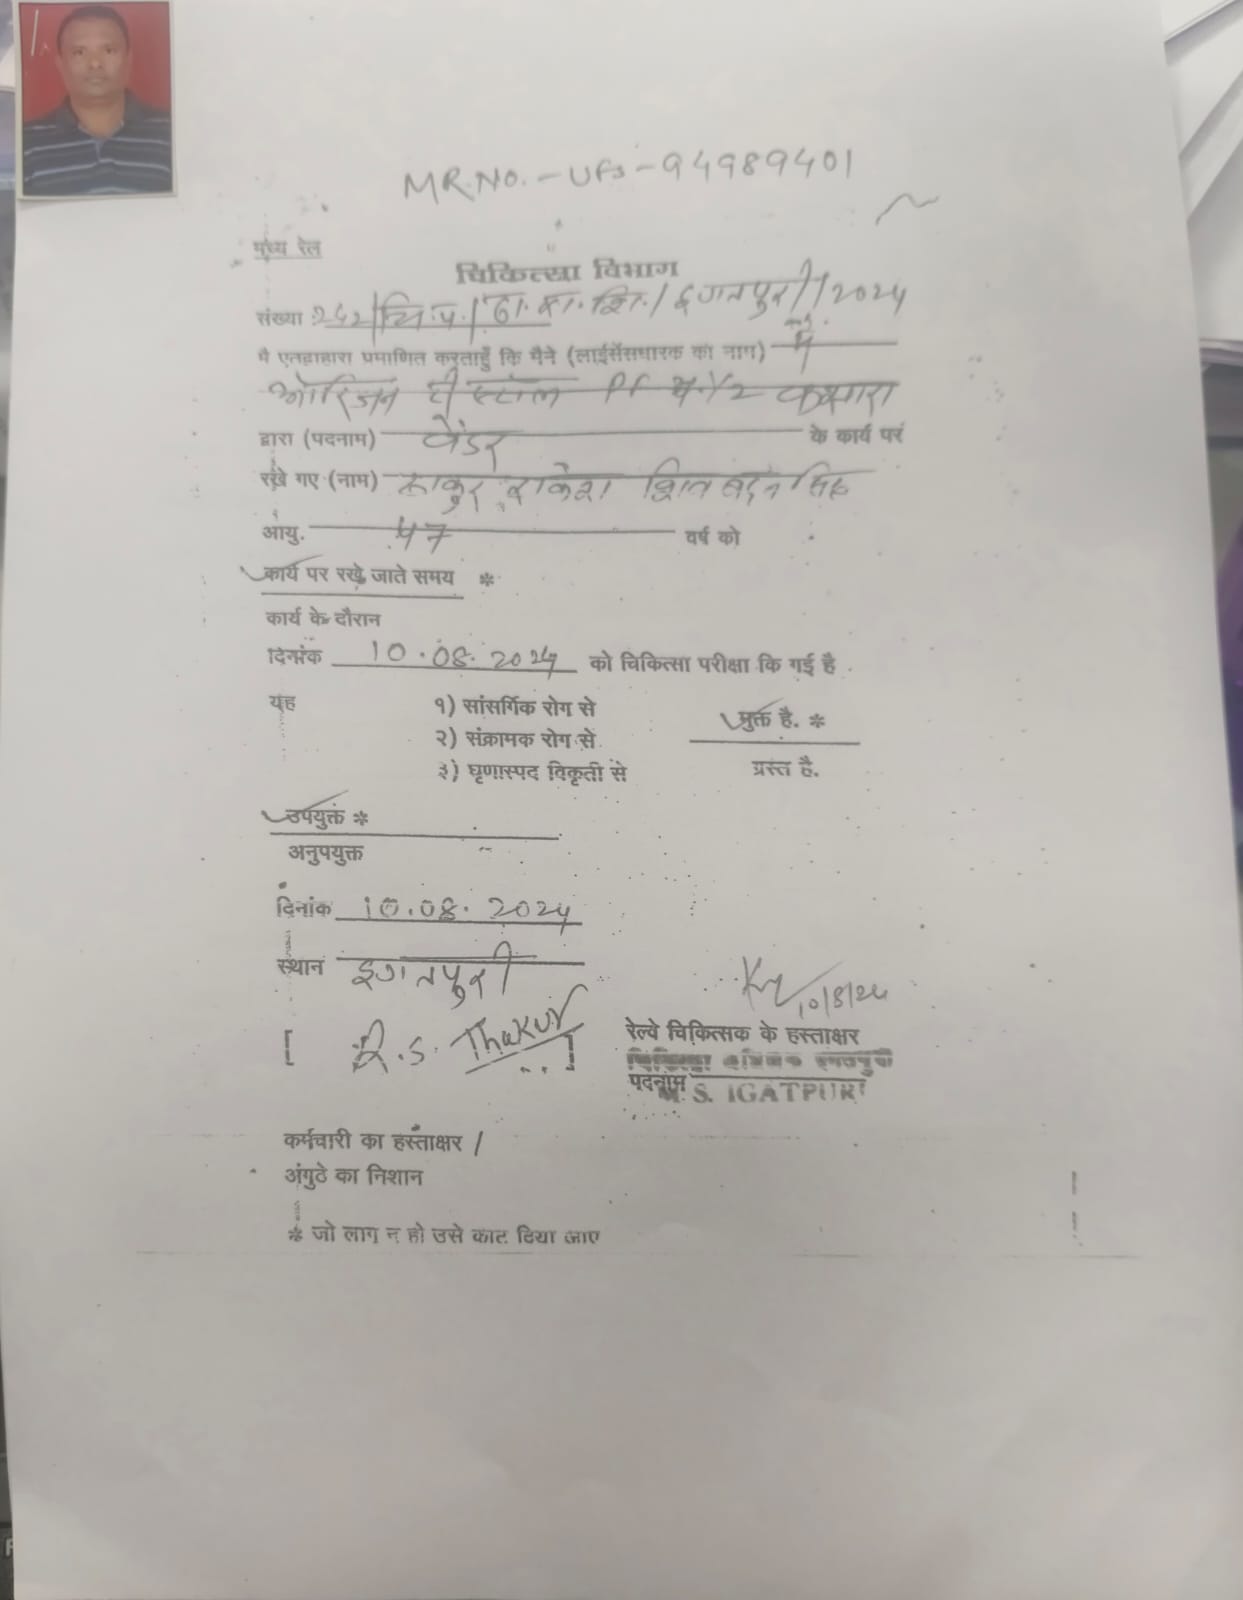 MR.NO. - UFS - 94989401
मध्य रेल
चिकित्सा विभाग
संख्या :242/चि.प./ठा.रा.शि./इगतपुरी/2024
मै एतद्वाहारा प्रमाणित करताहुँ कि मैने (लाईसेंसधारक का नाग) मे
ओरिजन टी स्टॉल PF 1/2 कसारा
द्वारा (पदनाम) वेंडर के कार्य परं
रखे गए (नाम) ठाकुर राकेश शिव बदन सिंह
आयु. 47 वर्ष को
कार्य पर रखे जाते समय *
कार्य के दौरान
दिनांक 10.08.2024 को चिकित्सा परीक्षा कि गई है
यह १) सांसर्गिक रोग से मुक्त है. *
२) संक्रामक रोग से
३) घृणास्पद विकृती से ग्रस्त है.
उपयुक्त *
अनुपयुक्त
दिनांक 10.08.2024
स्थान इगतपुरी
10/8/24
[ R.S. Thakur ] रेल्वे चिकित्सक के हस्ताक्षर
पदनाम S. IGATPURI
कर्मचारी का हस्ताक्षर /
अंगुठे का निशान
* जो लागु न हो उसे काट दिया जाए